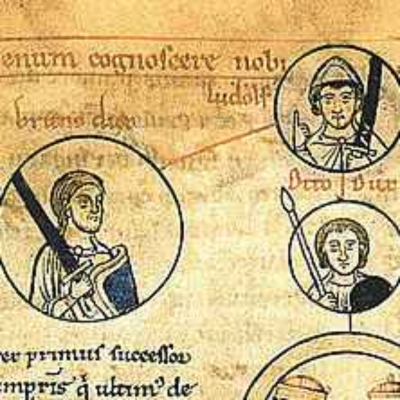 enum cognoscere nobi
Ludolf
bruno dux
Otto Dux
er primus successor
mpris q ultim' de